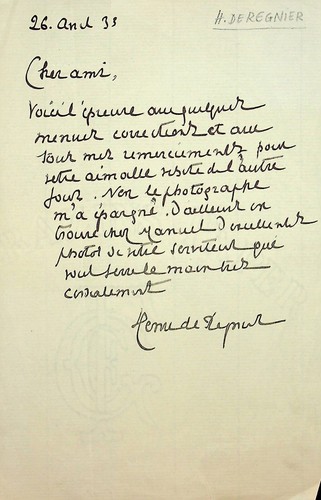 26. Avril 33
H. DEREGNIER
Cher ami,
Voici l'épreuve avec quelques
menues corrections et avec
tous mes remerciements pour
votre aimable visite de l'autre
jour. Non le photographe
m'a épargné. D'ailleurs on
trouve chez Manuel d'excellentes
photos de votre serviteur qui
vous serre la main très
cordialement
Henri de Régnier